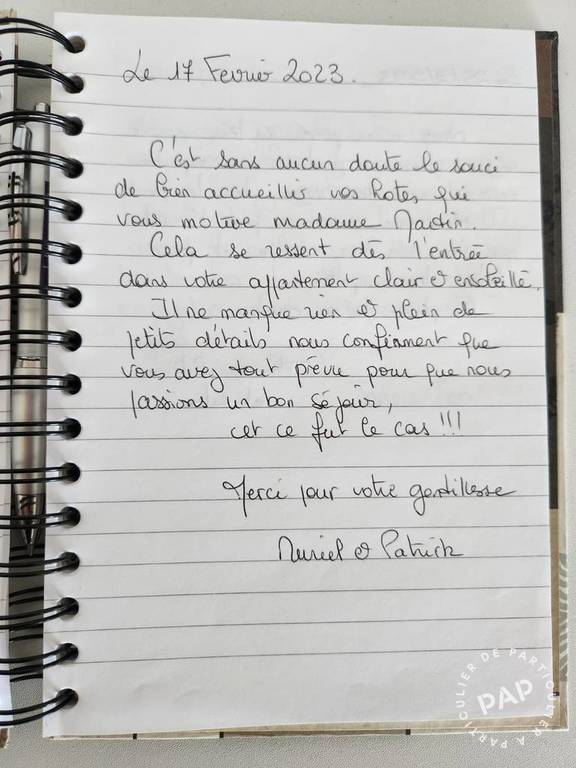 Le 17 Fevrier 2023.
C'est sans aucun doute le souci
de bien accueillir vos hotes qui
vous motive madame Martin.
Cela se ressent dès l'entrée
dans votre appartement clair et ensoleillé.
Il ne manque rien et plein de
petits détails nous confirment que
vous avez tout prévu pour que nous
passions un bon séjour,
et ce fut le cas !!!
Merci pour votre gentillesse
Muriel et Patrick
DE PARTICULIER A PARTICULIER
PAP